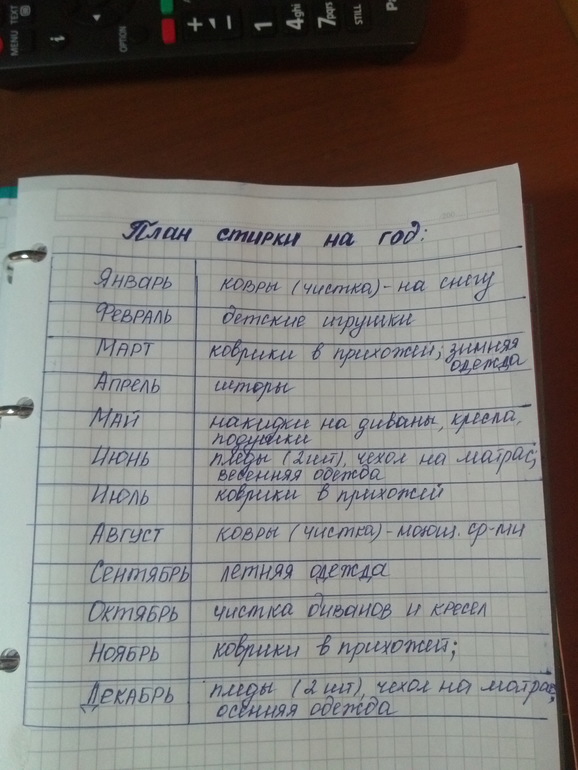 MENU
TEXT
i
OPTION
+
−
+
−
1
4ghi
7pqrs
STILL
План стирки на год:
Январь ковры (чистка) - на снегу
Февраль детские игрушки
Март коврики в прихожей; зимняя
одежда
Апрель шторы
Май накидки на диваны, кресла,
подушки
Июнь пледы (2 шт), чехол на матрас;
весенняя одежда
Июль коврики в прихожей
Август ковры (чистка) - моющ. ср-ми
Сентябрь летняя одежда
Октябрь чистка диванов и кресел
Ноябрь коврики в прихожей;
Декабрь пледы (2 шт), чехол на матрас,
осенняя одежда